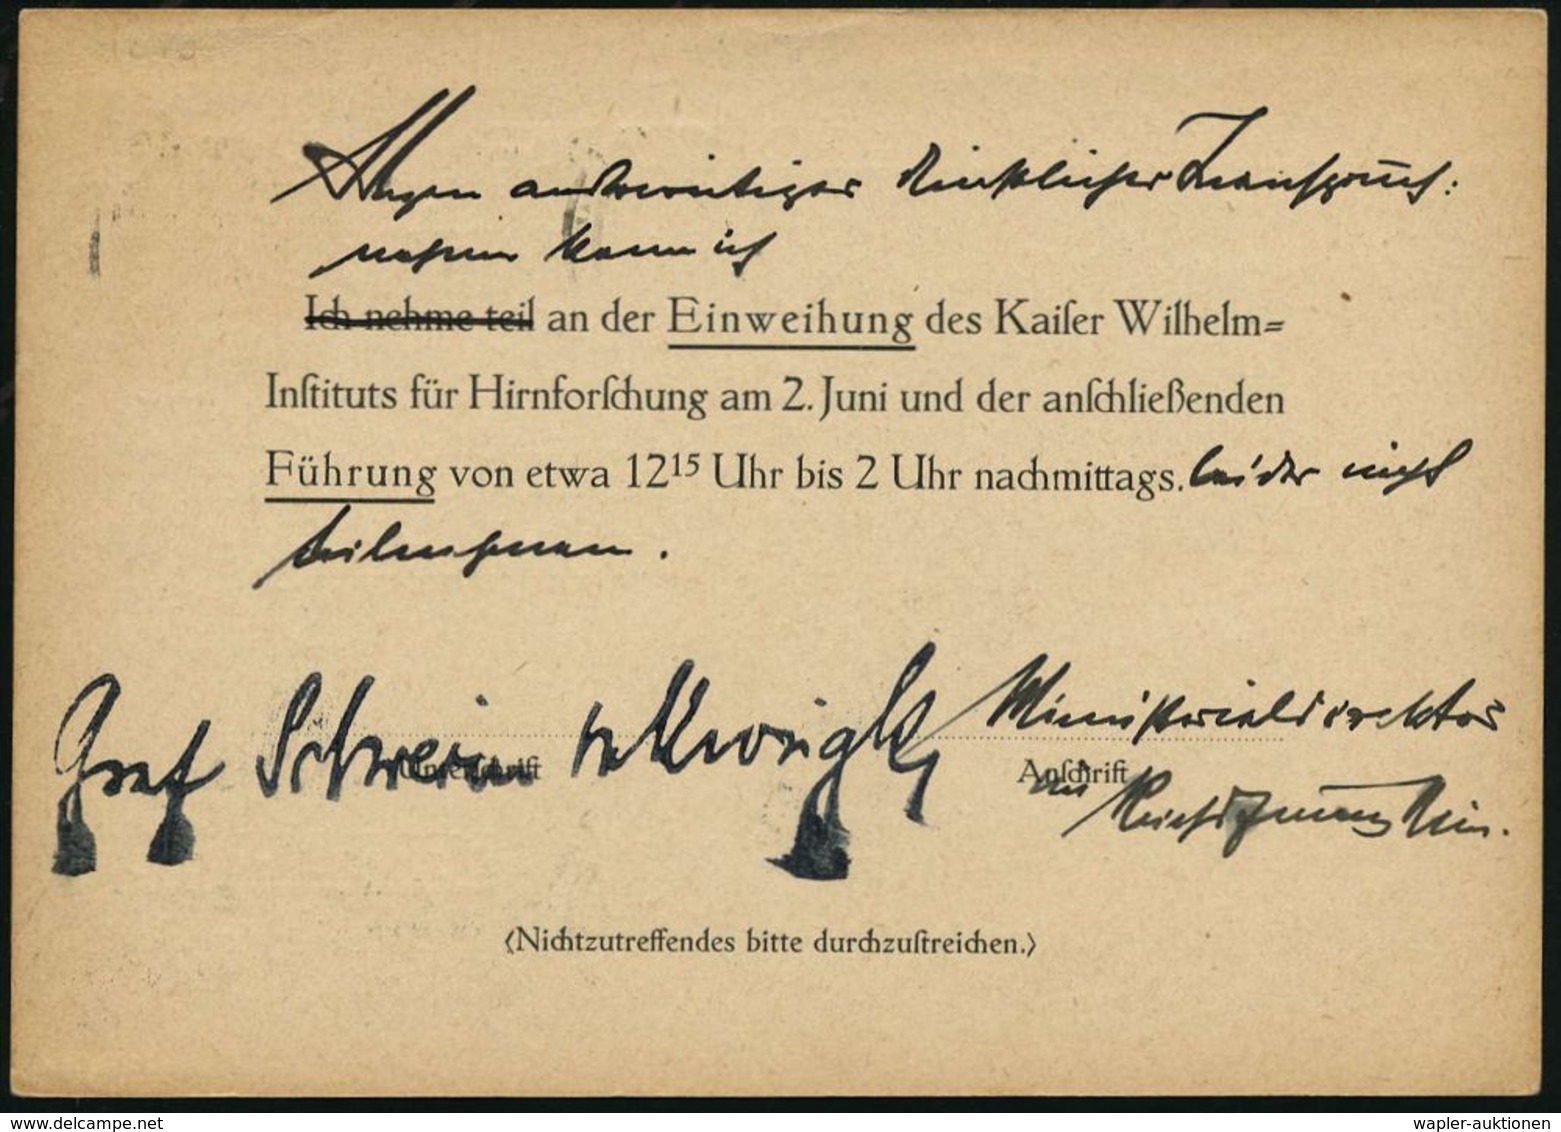 Wegen anderweitiger dienstlicher Inanspruch:
nahme kann ich
Ich nehme teil an der Einweihung des Kaiſer Wilhelm=
Inſtituts für Hirnforſchung am 2. Juni und der anſchließenden
Führung von etwa 12¹⁵ Uhr bis 2 Uhr nachmittags. leider nicht
teilnehmen.
Graf Schwerin von Krosigk, Ministerialdirektor
Unterschrift Anſchrift
im Reichsfinanzmin.
(Nichtzutreffendes bitte durchzuſtreichen.)
wapler-auktionen